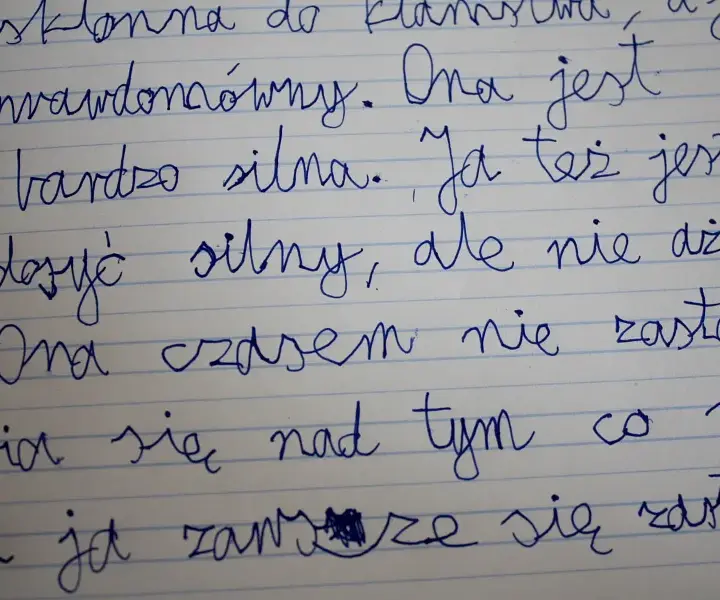 skłonna do kłamstwa, a
prawdomówny. Ona jest
bardzo silna. Ja też jes
dosyć silny, ale nie dź
Ona czasem nie zasta
ia się nad tym co
ja zawsze się zas